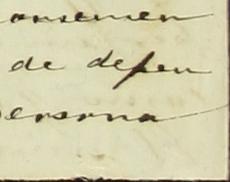 onsemen
de defen
persona